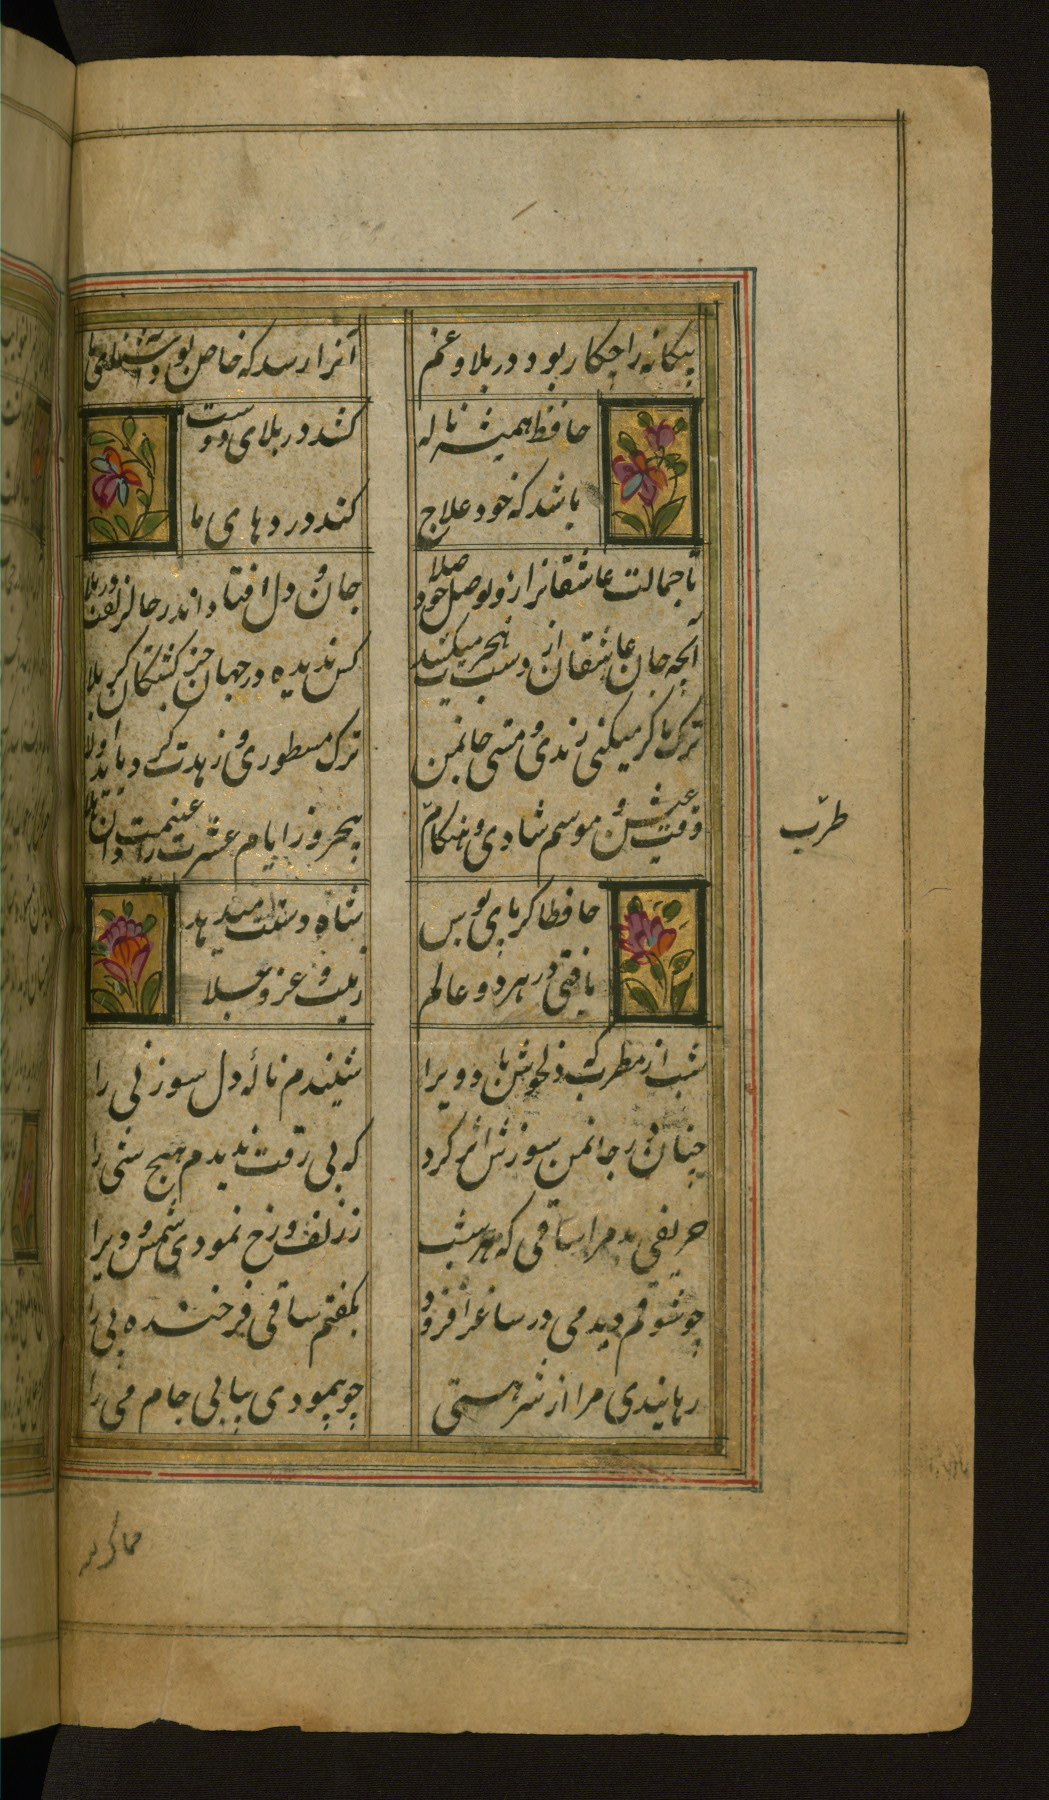 بیکانه را چکار بود در بلا و غم
آنرا رسد که خاص بود
حافظ همیشه ناله
کشد در بلای دوست
باشد که خود علاج
کند دردهای ما
تا جمالت عاشقانرا زد بوصل خود صلا
جان و دل افتاده اند در حال زلفت در بلا
آنچه جان عاشقان از دست هجرت میکشد
کس ندیده در جهان جز کشتکان کربلا
ترک ما کر میکنی رندی و مستی جانمن
ترک مسطوری و زهدت کرد باید اولا
وقت عیش و موسم شادی و هنکام
طرب
پنجروز ایام عشرت را غنیمت دان
حافظا کر پای بوس
شاه دستت میدهد
یافتی در هر دو عالم
زینت و عز و علا
شب از مطرب که دلخوش باد ویرا
شنیدم نالهٔ دل سوز نی را
چنان در جانمن سوزش اثر کرد
که بی رقت ندیدم هیچ شئی را
حریفی بد مرا ساقی که هر شب
ز زلف و رخ نمودی شمس و دیرا
چو شوقم دید می در ساغر افزود
بکفتم ساقی فرخنده پی را
رهانیدی مرا از شر هستی
چو پیمودی پیاپی جام می را
حماک الله